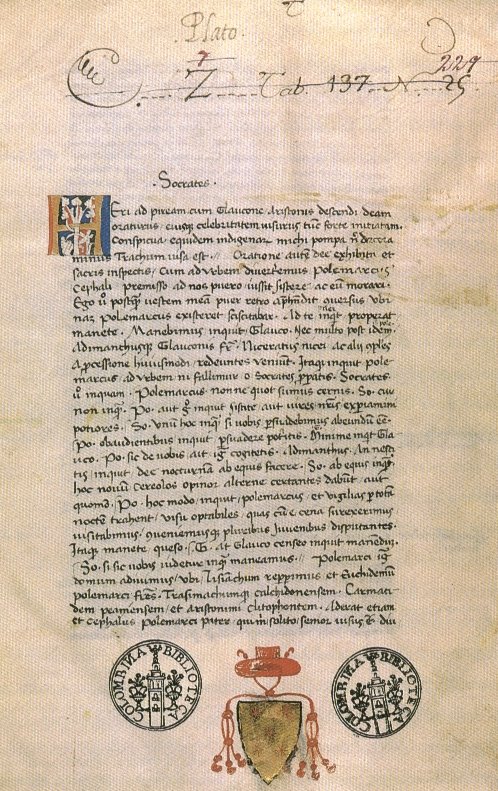 Plato.
Z Tab. 137 N 25
229
· Socrates ·
Heri ad piream cum Glaucone Aristonis descendi deam
oraturus, eiusq; celebritatem visurus tūc forte initiatam.
Conspicua equidem indigenar michi pompa n decora
minus Trachium visa est. Oratione autē dec exhibita et
sacris inspectis, Cum ad urbem diverteremus Polemarcus
Cephali premisso ad nos puero iussit sistere ac eum morari.
Ego v postq vestem meā puer retro aphendit aversus ubi
nam Polemarcus existeret sciscitabar. Ad te inqt properat
manete. Manebimus inquit Glauco. Nec multo post idem
Adimanthusq; Glauconis fr. Niceratus nicei ac alii 9ples
a pcessione huiusmodi redeuntes veniunt. Itaq; inquit pole
marcus ad urbem ni fallimur o Socrates ppatis. Socrates
inquam. Polemarcus nonne quot simus cernis. So. cur
non inq. Po. aut inquit sistite aut vires nr̄as expiamini
potiores. So. Unū hoc inq si vobis psuadebimus abeundū eē.
Po. obaudientibus inquit psuadere potitis. Minime inqt Gla
uco. Po. sic de nobis aut ig cogitetis. Adimanthus. An nesci
tis inquit dec nocturna ab equis facere. So. ab equis inq
hoc novū cereolos opinor alterne certantes dabūt aut
quomō. Po. hoc modo inquit polemarcus, et vigilias p totā
noctē trahent, visu optabiles, quas cū e cena surexerimus
visitabimus, 9veniemusq; pluribus iuvenibus disputantes.
Itaq; manete queso. G. at Glauco censeo inquit manedū.
So. si sic vobis videtur inq maneamus. Polemarci ig
domum adivimus, ubi Lisiachum repperimus et Euchidemū
polemarci frēs. Trasimachumq; calchidonensem. Carmati
dem peamensem, et aristonimi clitophontem. Aderat etiam
et Cephalus Polemarci pater, qui m solito senior visus ē diu
BIBLIOTECA COLOMBINA
BIBLIOTECA COLOMBINA